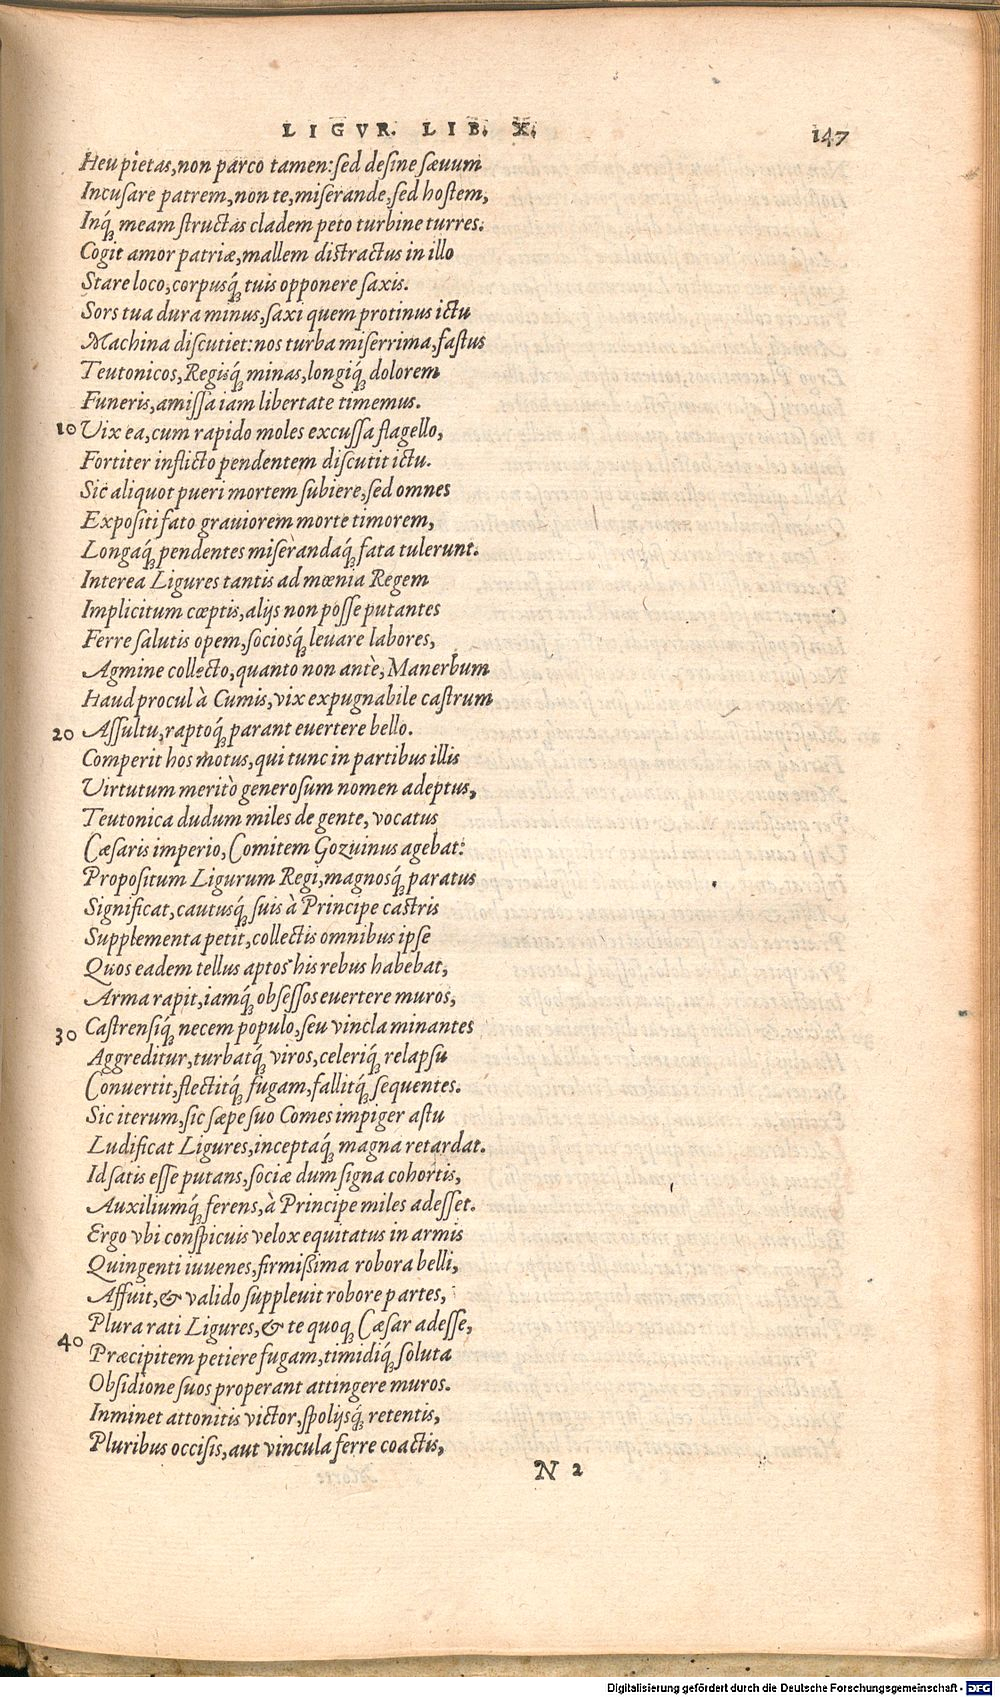 LIGVR. LIB. X. 147
Heu pietas, non parco tamen: sed desine sævum
Incusare patrem, non te, miserande, sed hostem,
Inq́ꝫ meam structas cladem peto turbine turres.
Cogit amor patriæ, mallem distractus in illo
Stare loco, corpusq́ꝫ tuis opponere saxis.
Sors tua dura minus, saxi quem protinus ictu
Machina discutiet: nos turba miserrima, fastus
Teutonicos, Regisq́ꝫ minas, longiq́ꝫ dolorem
Funeris, amissa iam libertate timemus.
10 Vix ea, cum rapido moles excussa flagello,
Fortiter inflicto pendentem discutit ictu.
Sic aliquot pueri mortem subiere, sed omnes
Expositi fato grauiorem morte timorem,
Longaq́ꝫ pendentes miserandaq́ꝫ fata tulerunt.
Interea Ligures tantis ad mœnia Regem
Implicitum cœptis, alijs non posse putantes
Ferre salutis opem, sociosq́ꝫ leuare labores,
Agmine collecto, quanto non antè, Manerbum
Haud procul à Cumis, vix expugnabile castrum
20 Assultu, raptoq́ꝫ parant euertere bello.
Comperit hos motus, qui tunc in partibus illis
Virtutum meritò generosum nomen adeptus,
Teutonica dudum miles de gente, vocatus
Cæsaris imperio, Comitem Gozuinus agebat:
Propositum Ligurum Regi, magnosq́ꝫ paratus
Significat, cautusq́ꝫ suis à Principe castris
Supplementa petit, collectis omnibus ipse
Quos eadem tellus aptos his rebus habebat,
Arma rapit, iamq́ꝫ obsessos euertere muros,
30 Castrensiq́ꝫ necem populo, seu vincla minantes
Aggreditur, turbatq́ꝫ viros, celeriq́ꝫ relapsu
Convertit, flectitq́ꝫ fugam, fallitq́ꝫ sequentes.
Sic iterum, sic sæpe suo Comes impiger astu
Ludificat Ligures, inceptaq́ꝫ magna retardat.
Id satis esse putans, sociæ dum signa cohortis,
Auxiliumq́ꝫ ferens, à Principe miles adesset.
Ergo vbi conspicuis velox equitatus in armis
Quingenti iuvenes, firmißima robora belli,
Affuit, & valido suppleuit robore partes,
Plura rati Ligures, & te quoqꝫ Cæsar adesse,
40 Præcipitem petiere fugam, timidiq́ꝫ soluta
Obsidione suos properant attingere muros.
Inminet attonitis victor, spolijsq́ꝫ retentis,
Pluribus occisis, aut vincula ferre coactis,
N 2
Digitalisierung gefördert durch die Deutsche Forschungsgemeinschaft - DFG